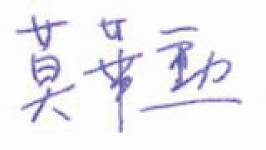 莫華勳